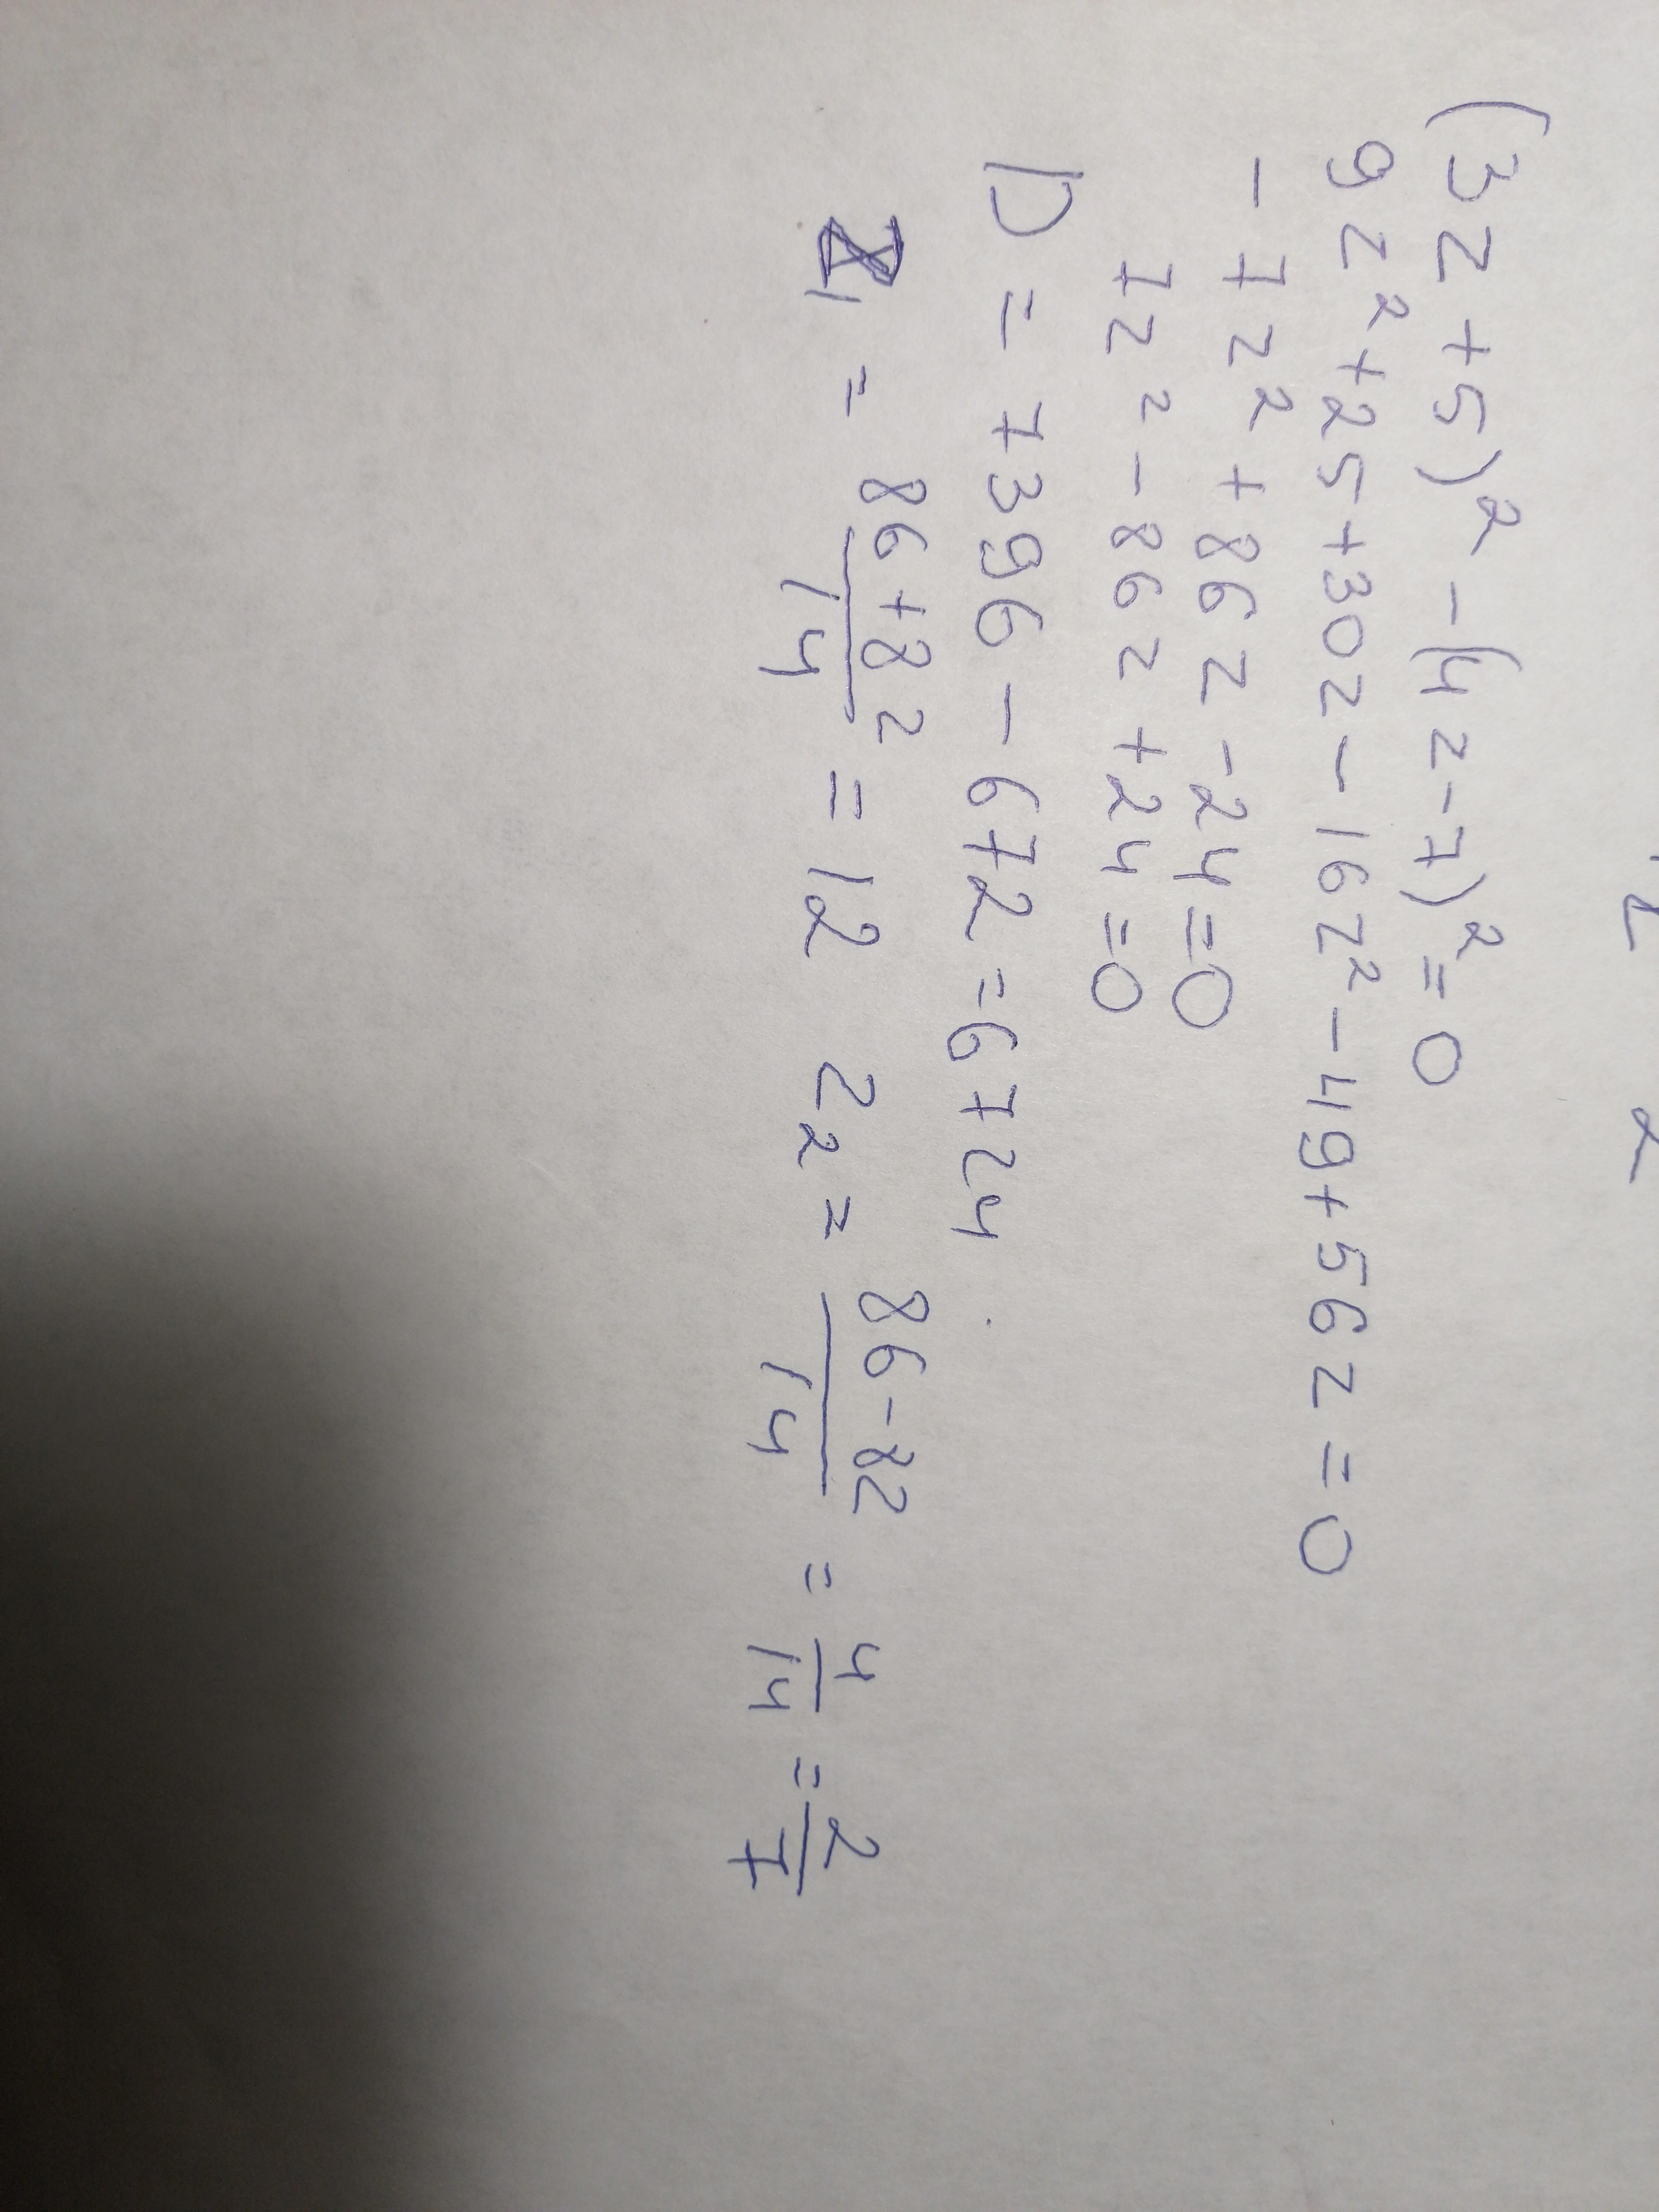 (3z+5)² - (4z-7)² = 0
9z² + 25 + 30z - 16z² - 49 + 56z = 0
- 7z² + 86z - 24 = 0
7z² - 86z + 24 = 0
D = 7396 - 672 = 6724
z₁ = (86+82)/14 = 12 z₂ = (86-82)/14 = 4/14 = 2/7